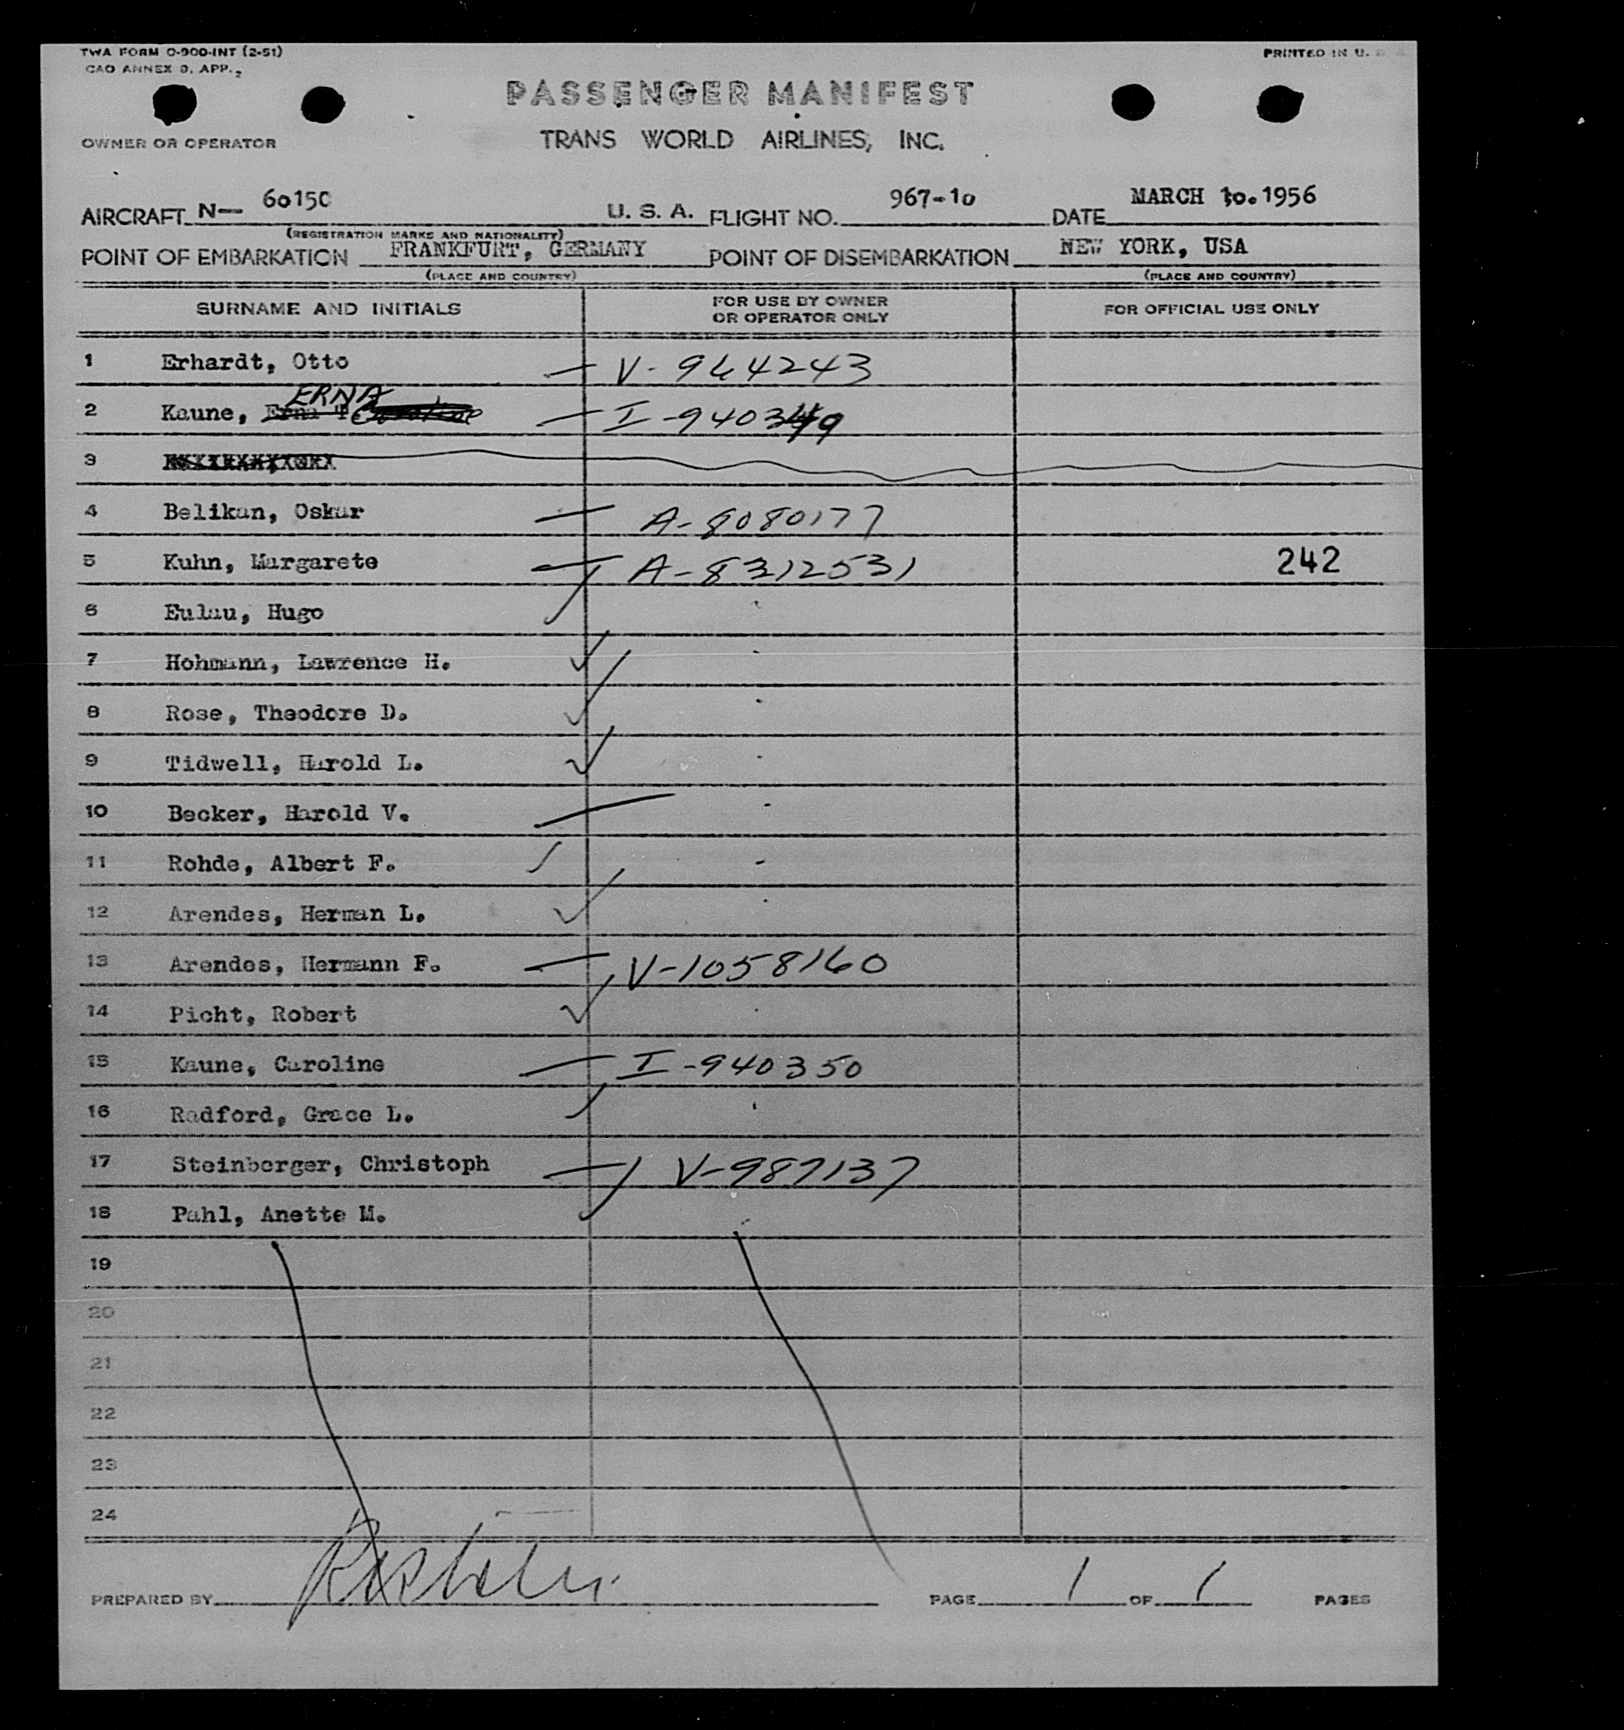 TWA FORM O-900-INT (2-51)
PRINTED IN U.
CAO ANNEX 9. APP. 2
PASSENGER MANIFEST
OWNER OR OPERATOR
TRANS WORLD AIRLINES, INC.
AIRCRAFT N— 6015C U. S. A. FLIGHT NO. 967-10 DATE MARCH 10.1956
(REGISTRATION MARKS AND NATIONALITY)
POINT OF EMBARKATION FRANKFURT, GERMANY POINT OF DISEMBARKATION NEW YORK, USA
(PLACE AND COUNTRY) (PLACE AND COUNTRY)
SURNAME AND INITIALS FOR USE BY OWNER OR OPERATOR ONLY FOR OFFICIAL USE ONLY
1 Erhardt, Otto V-944243
2 Kaune, Erna T. ERNA I-940349
3
4 Belikan, Oskar A-8080177
5 Kuhn, Margarete A-8312531 242
6 Eulau, Hugo
7 Hohmann, Lawrence H.
8 Rose, Theodore D.
9 Tidwell, Harold L.
10 Becker, Harold V.
11 Rohde, Albert F.
12 Arendes, Herman L.
13 Arendes, Hermann F. V-1058160
14 Picht, Robert
15 Kaune, Caroline I-940350
16 Radford, Grace L.
17 Steinberger, Christoph V-987137
18 Pahl, Anette M.
19
20
21
22
23
24
PREPARED BY PAGE 1 OF 1 PAGES